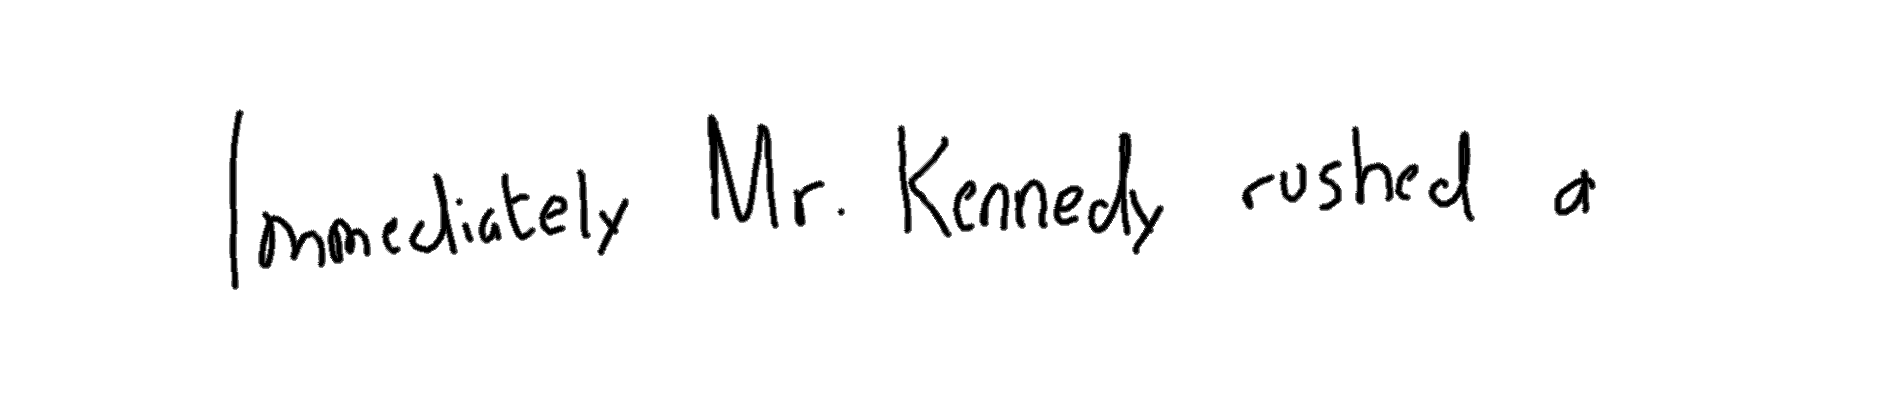 Immediately Mr. Kennedy rushed a